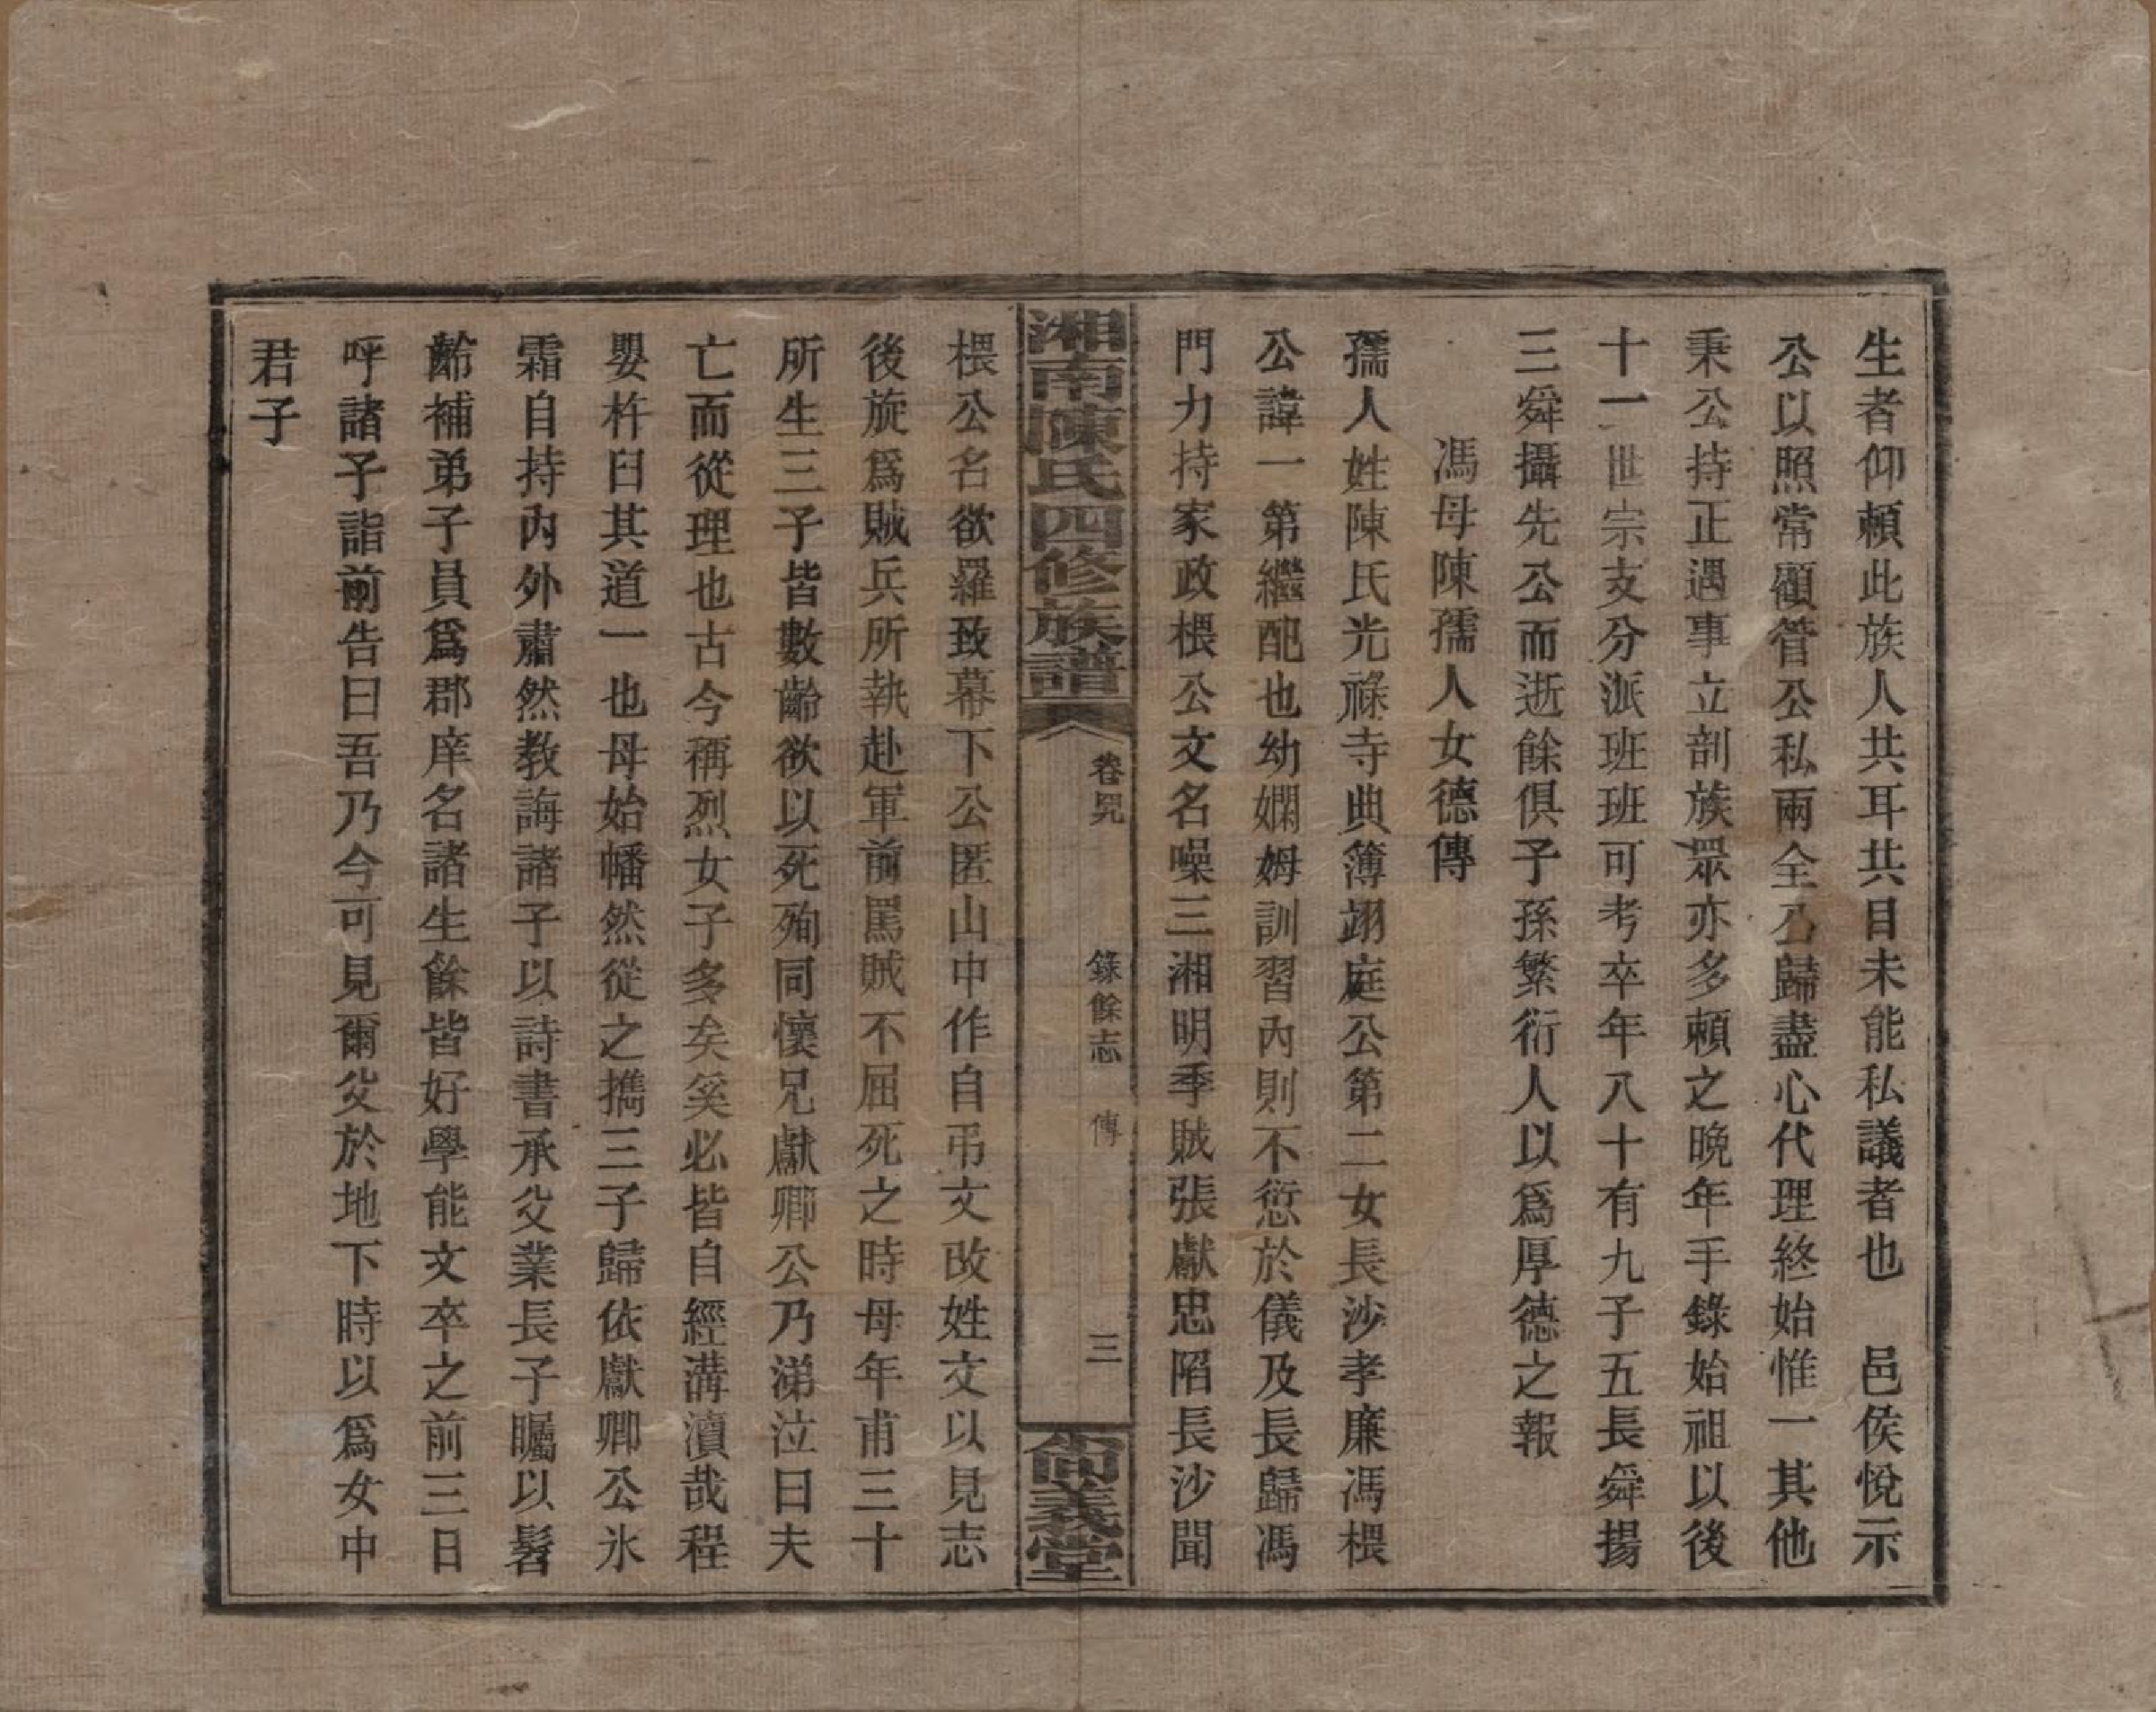 生者仰賴此族人共耳共目未能私議者也　邑侯悅示
公以照常顧管公私兩全乃歸盡心代理終始惟一其他
秉公持正遇事立剖族眾亦多賴之晚年手錄始祖以後
十一世宗支分派班班可考卒年八十有九子五長舜揚
三舜攝先公而逝餘俱子孫繁衍人以爲厚德之報
馮母陳孺人女德傳
孺人姓陳氏光祿寺典簿翊庭公第二女長沙孝廉馮椳
公諱一第繼配也幼嫻姆訓習內則不愆於儀及長歸馮
門力持家政椳公文名噪三湘明季賊張獻忠陷長沙聞
湘南陳氏四修族譜
卷㽛
錄餘志　傳
三
尙義堂
椳公名欲羅致幕下公匿山中作自弔文改姓文以見志
後旋爲賊兵所執赴軍前罵賊不屈死之時母年甫三十
所生三子皆數齡欲以死殉同懷兄獻卿公乃涕泣曰夫
亡而從理也古今稱烈女子多矣奚必皆自經溝瀆哉程
嬰杵臼其道一也母始幡然從之攜三子歸依獻卿公氷
霜自持內外肅然教誨諸子以詩書承父業長子矚以髫
齡補弟子員爲郡庠名諸生餘皆好學能文卒之前三日
呼諸子詣前告曰吾乃今可見爾父於地下時以爲女中
君子